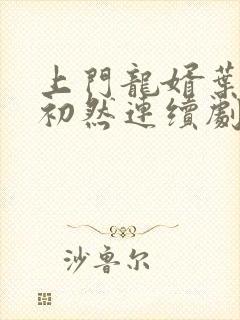 上門龍婿葉
初然連續劇
沙鲁尔